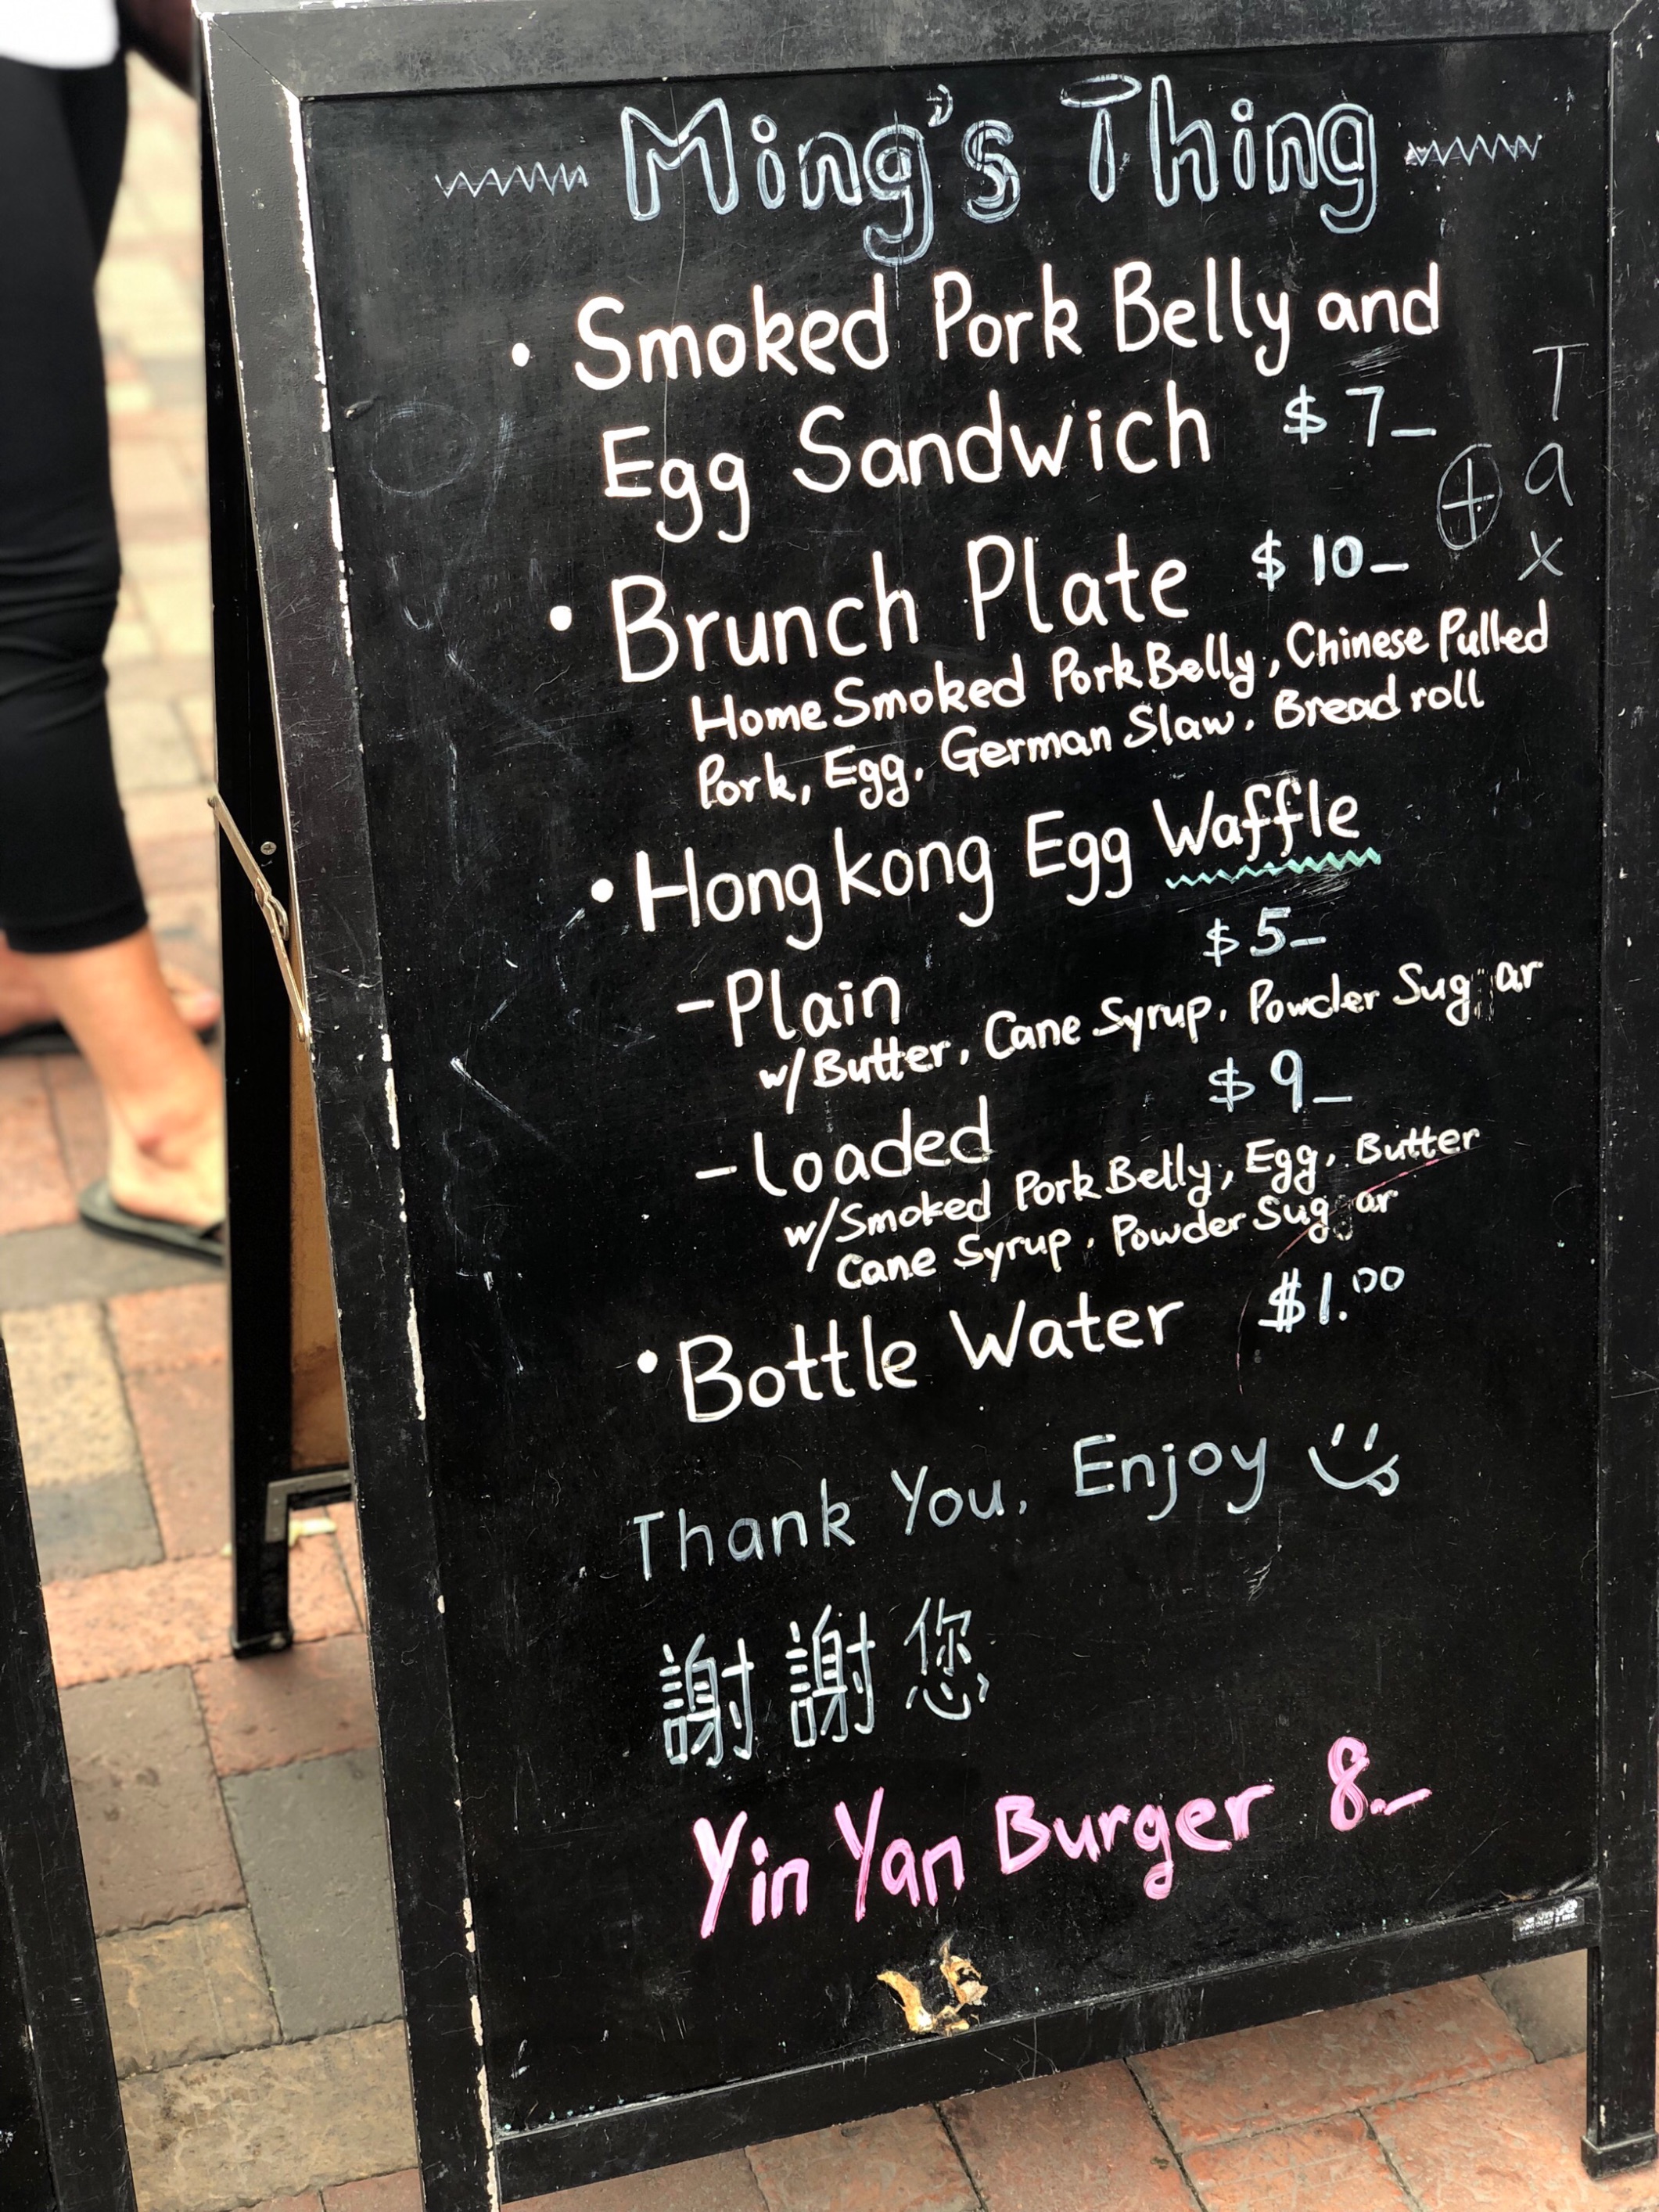 Ming's Thing
• Smoked Pork Belly and
Egg Sandwich $7_
+ Tax
• Brunch Plate $10_
Home Smoked Pork Belly, Chinese Pulled
Pork, Egg, German Slaw, Bread roll
• Hong kong Egg Waffle
$5_
- Plain
w/Butter, Cane Syrup, Powder Sugar
$9_
- loaded
w/Smoked Pork Belly, Egg, Butter
Cane Syrup, Powder Sugar
• Bottle Water $1.00
Thank You, Enjoy
謝謝您
Yin Yan Burger 8._